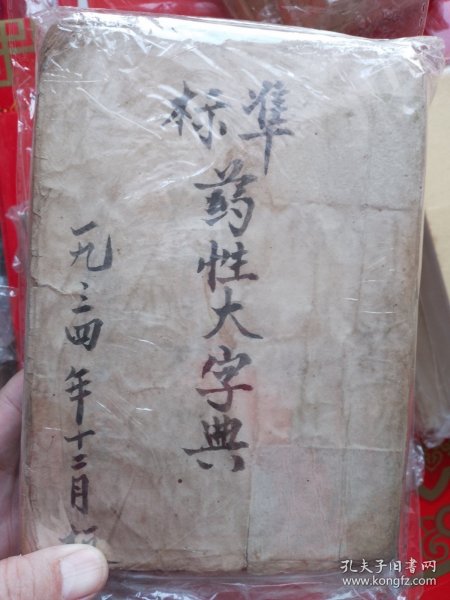 标準
药性大字典
一九三四年十二月
孔夫子旧书网
www.kongfz.com